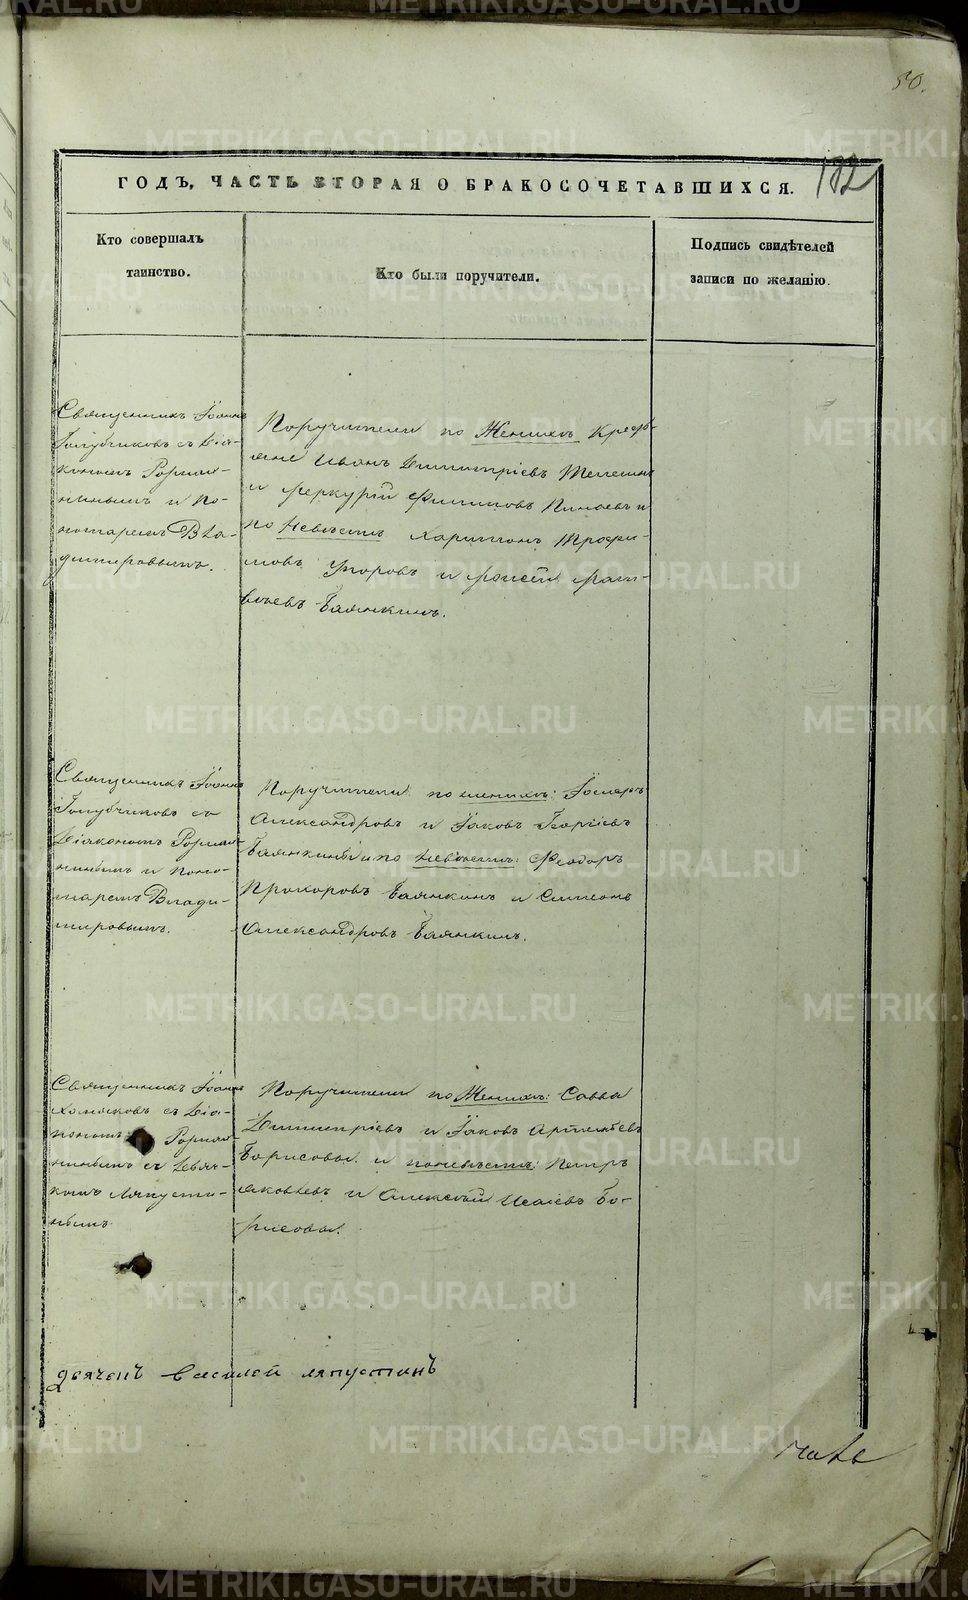 50.
182
ГОДЪ, ЧАСТЬ ВТОРАЯ О БРАКОСОЧЕТАВШИХСЯ.
Кто совершалъ
таинство.
Кто были поручители.
Подпись свидѣтелей
записи по желанію.
Священникъ Іоаннъ
Голубчиковъ съ Діа-
кономъ
и По-
номаремъ Вла-
диміровымъ.
Поручители по Женихѣ Кресть-
яне Иванъ Димитріевъ
и Меркурій Филиповъ Пинаевъ и
по Невѣстѣ Харитонъ Трофи-
мовъ и Моисей Мат-
вѣевъ Баянкинъ.
Священникъ Іоаннъ
Голубчиковъ со
Діакономъ
и Поно-
маремъ Влади-
міровымъ.
Поручители по женихѣ:
Александровъ и Іаковъ Георгіевъ
Баянкины и по невѣстѣ: Феодоръ
Прохоровъ Баянкинъ и Симеонъ
Александровъ Баянкинъ.
Священникъ Іоаннъ
Хомяковъ съ Діа-
кономъ
съ Дьяч-
комъ Ляпусти-
нымъ
Поручители по Женихѣ: Савва
Димитріевъ и Іаковъ Артемьевъ
Борисовы и по невѣстѣ: Петръ
Яковлевъ и Алексѣй Исаіевъ Бо-
рисовы.
дячекъ василей ляпустинъ
METRIKI.GASO-URAL.RU